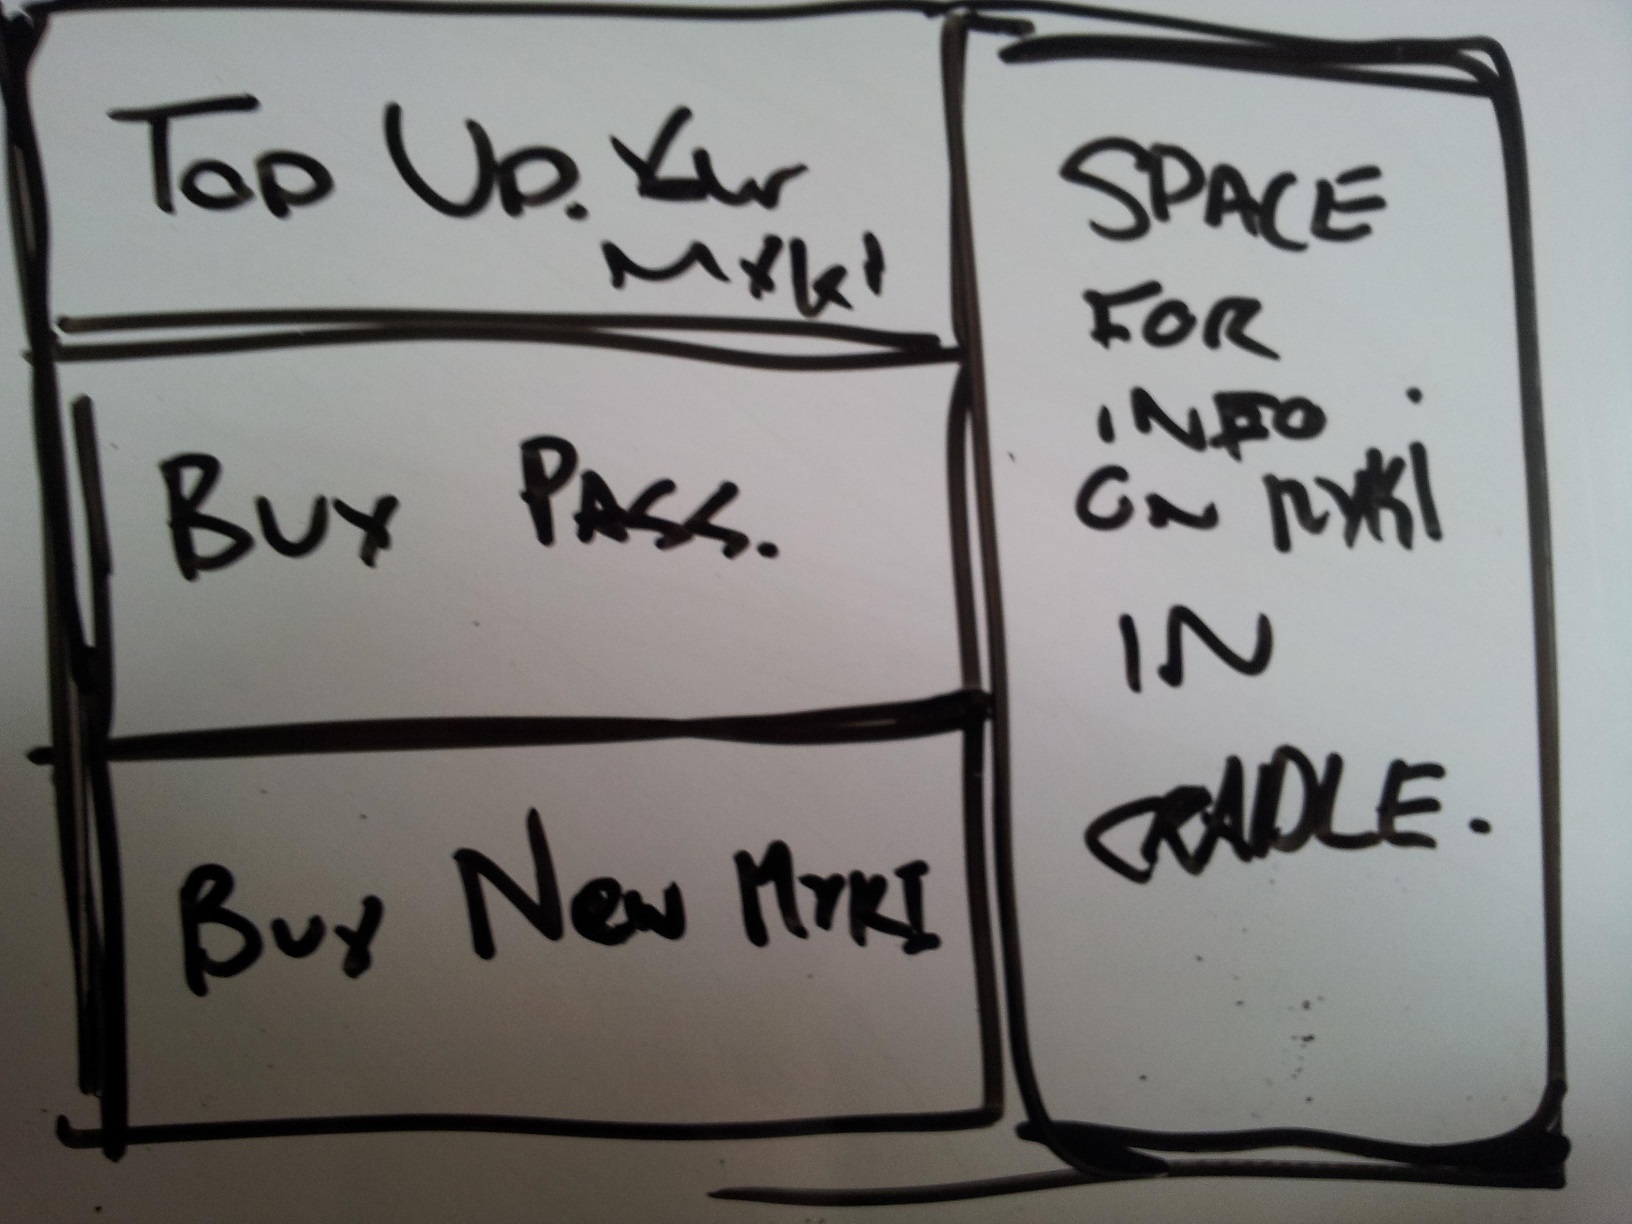 Top Up. Your
Myki
Buy Pass.
Buy New Myki
SPACE
FOR
INFO
ON MYKI
IN
CRADLE.